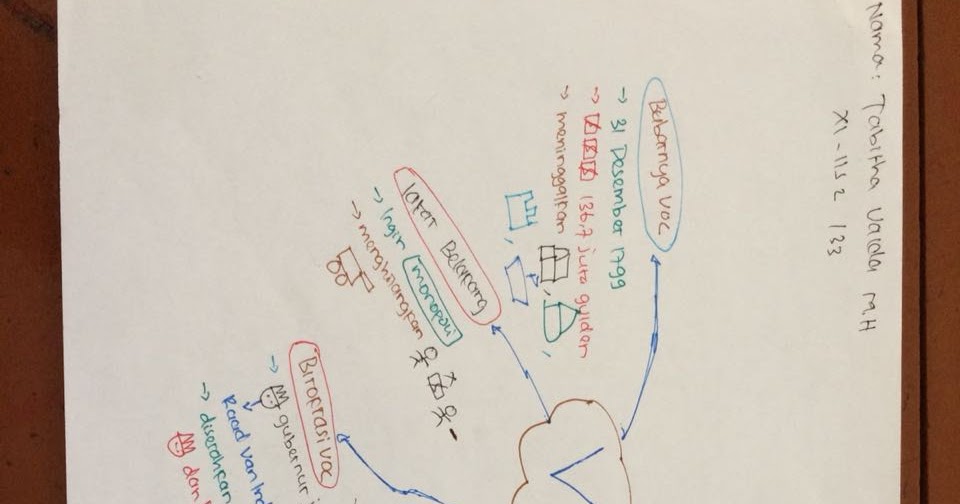 Nama: Tabitha Vaida M.H
XI-IIS 2 /33
Bubarnya VOC
→ 31 Desember 1799
→ 136,7 juta gulden
→ meninggalkan , ,
Latar Belakang
→ Ingin monopoli
→ menghilangkan
Birokrasi VOC
→ gubernur
Raad van Ind
→ diserahkan
dan
V